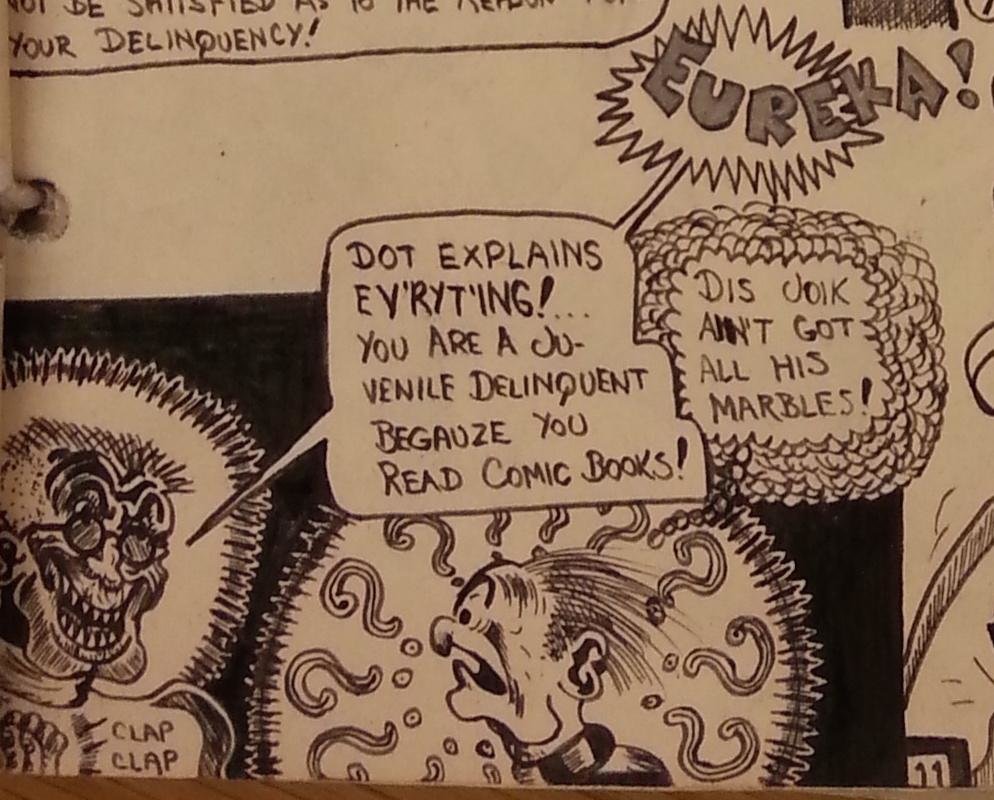 NOT BE SATISFIED AS TO THE REASON FOR
YOUR DELINQUENCY!
EUREKA!
DOT EXPLAINS
EV'RYT'ING!...
YOU ARE A JU-
VENILE DELINQUENT
BEGAUZE YOU
READ COMIC BOOKS!
DIS JOIK
AIN'T GOT
ALL HIS
MARBLES!
CLAP
CLAP
11